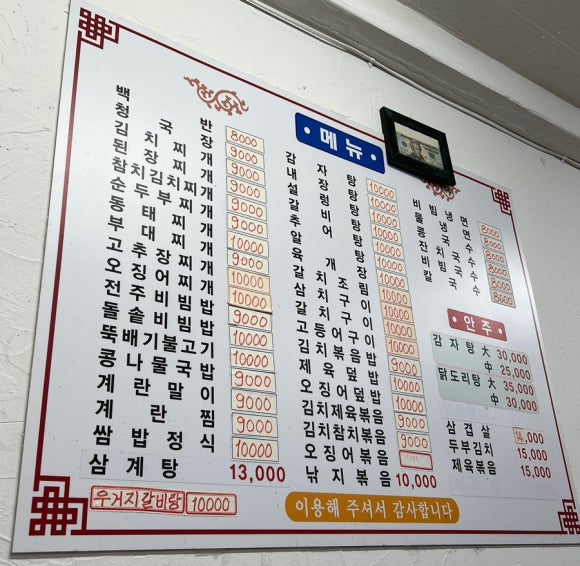 메뉴
백반 8000
청국장 9000
김치찌개 9000
된장찌개 9000
참치김치찌개 9000
순두부찌개 9000
동태찌개 10000
부대찌개 9000
고추장찌개 10000
오징어비빔밥 10000
전주비빔밥 9000
돌솥비빔밥 10000
뚝배기불고기 10000
콩나물국밥 9000
계란말이 9000
계란찜 9000
쌈밥정식 10000
삼계탕 13,000
우거지갈비탕 10000
감자탕 10000
내장탕 10000
설렁탕 10000
갈비탕 10000
추어탕 10000
알탕 10000
육개장 10000
갈치조림 10000
삼치구이 10000
갈치구이 9000
고등어구이 9000
김치볶음밥 9000
제육덮밥 10000
오징어덮밥 10000
김치제육볶음 9000
김치참치볶음 9000
오징어볶음
낚지볶음 10,000
비빔냉면 8000
물냉면 8000
콩국수 8000
잔치국수 8000
비빔국수 8000
칼국수 8000
안주
감자탕 大 30,000
中 25,000
닭도리탕 大 35,000
中 30,000
삼겹살 14,000
두부김치 15,000
제육볶음 15,000
이용해 주셔서 감사합니다